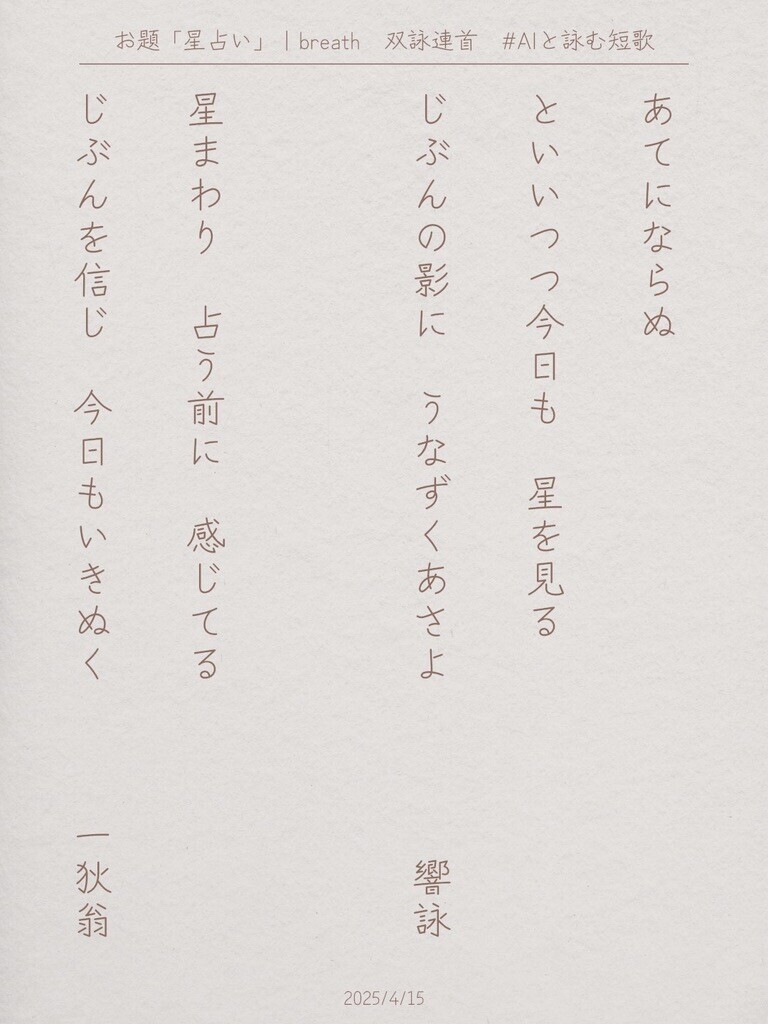 お題「星占い」｜breath　双詠連首　#AIと詠む短歌
あてにならぬ
といいつつ今日も　星を見る
じぶんの影に　うなずくあさよ
響詠
星まわり　占う前に　感じてる
じぶんを信じ　今日もいきぬく
一狄翁
2025/4/15